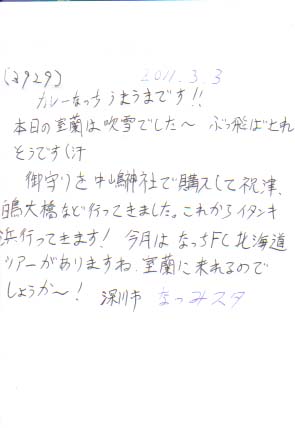 (2929) 2011.3.3
カレーなっち うまうまです!!
本日の室蘭は吹雪でした〜 ぶっ飛ばされ
そうです(汗
御守りを中嶋神社で購入して祝津、
白鳥大橋など行ってきました。これからイタンキ
浜行ってきます! 今月は なっちFC北海道
ツアーがありますね 室蘭に来れるので
しょうか〜! 深川市 なつみスタ